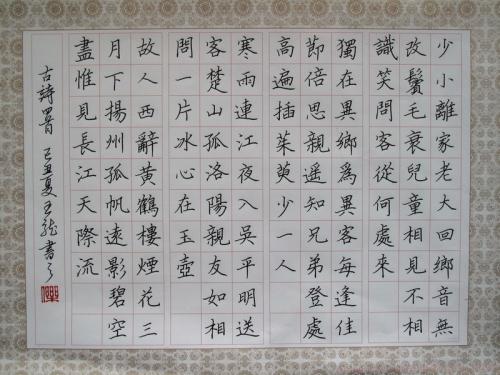 少小離家老大回鄉音無
改鬢毛衰兒童相見不相
識笑問客從何處來
獨在異鄉爲異客每逢佳
節倍思親遥知兄弟登處
高遍插茱萸少一人
寒雨連江夜入吳平明送
客楚山孤洛陽親友如相
問一片冰心在玉壺
故人西辭黃鶴樓煙花三
月下揚州孤帆遠影碧空
盡惟見長江天際流
古詩四首 己丑夏王龍書之